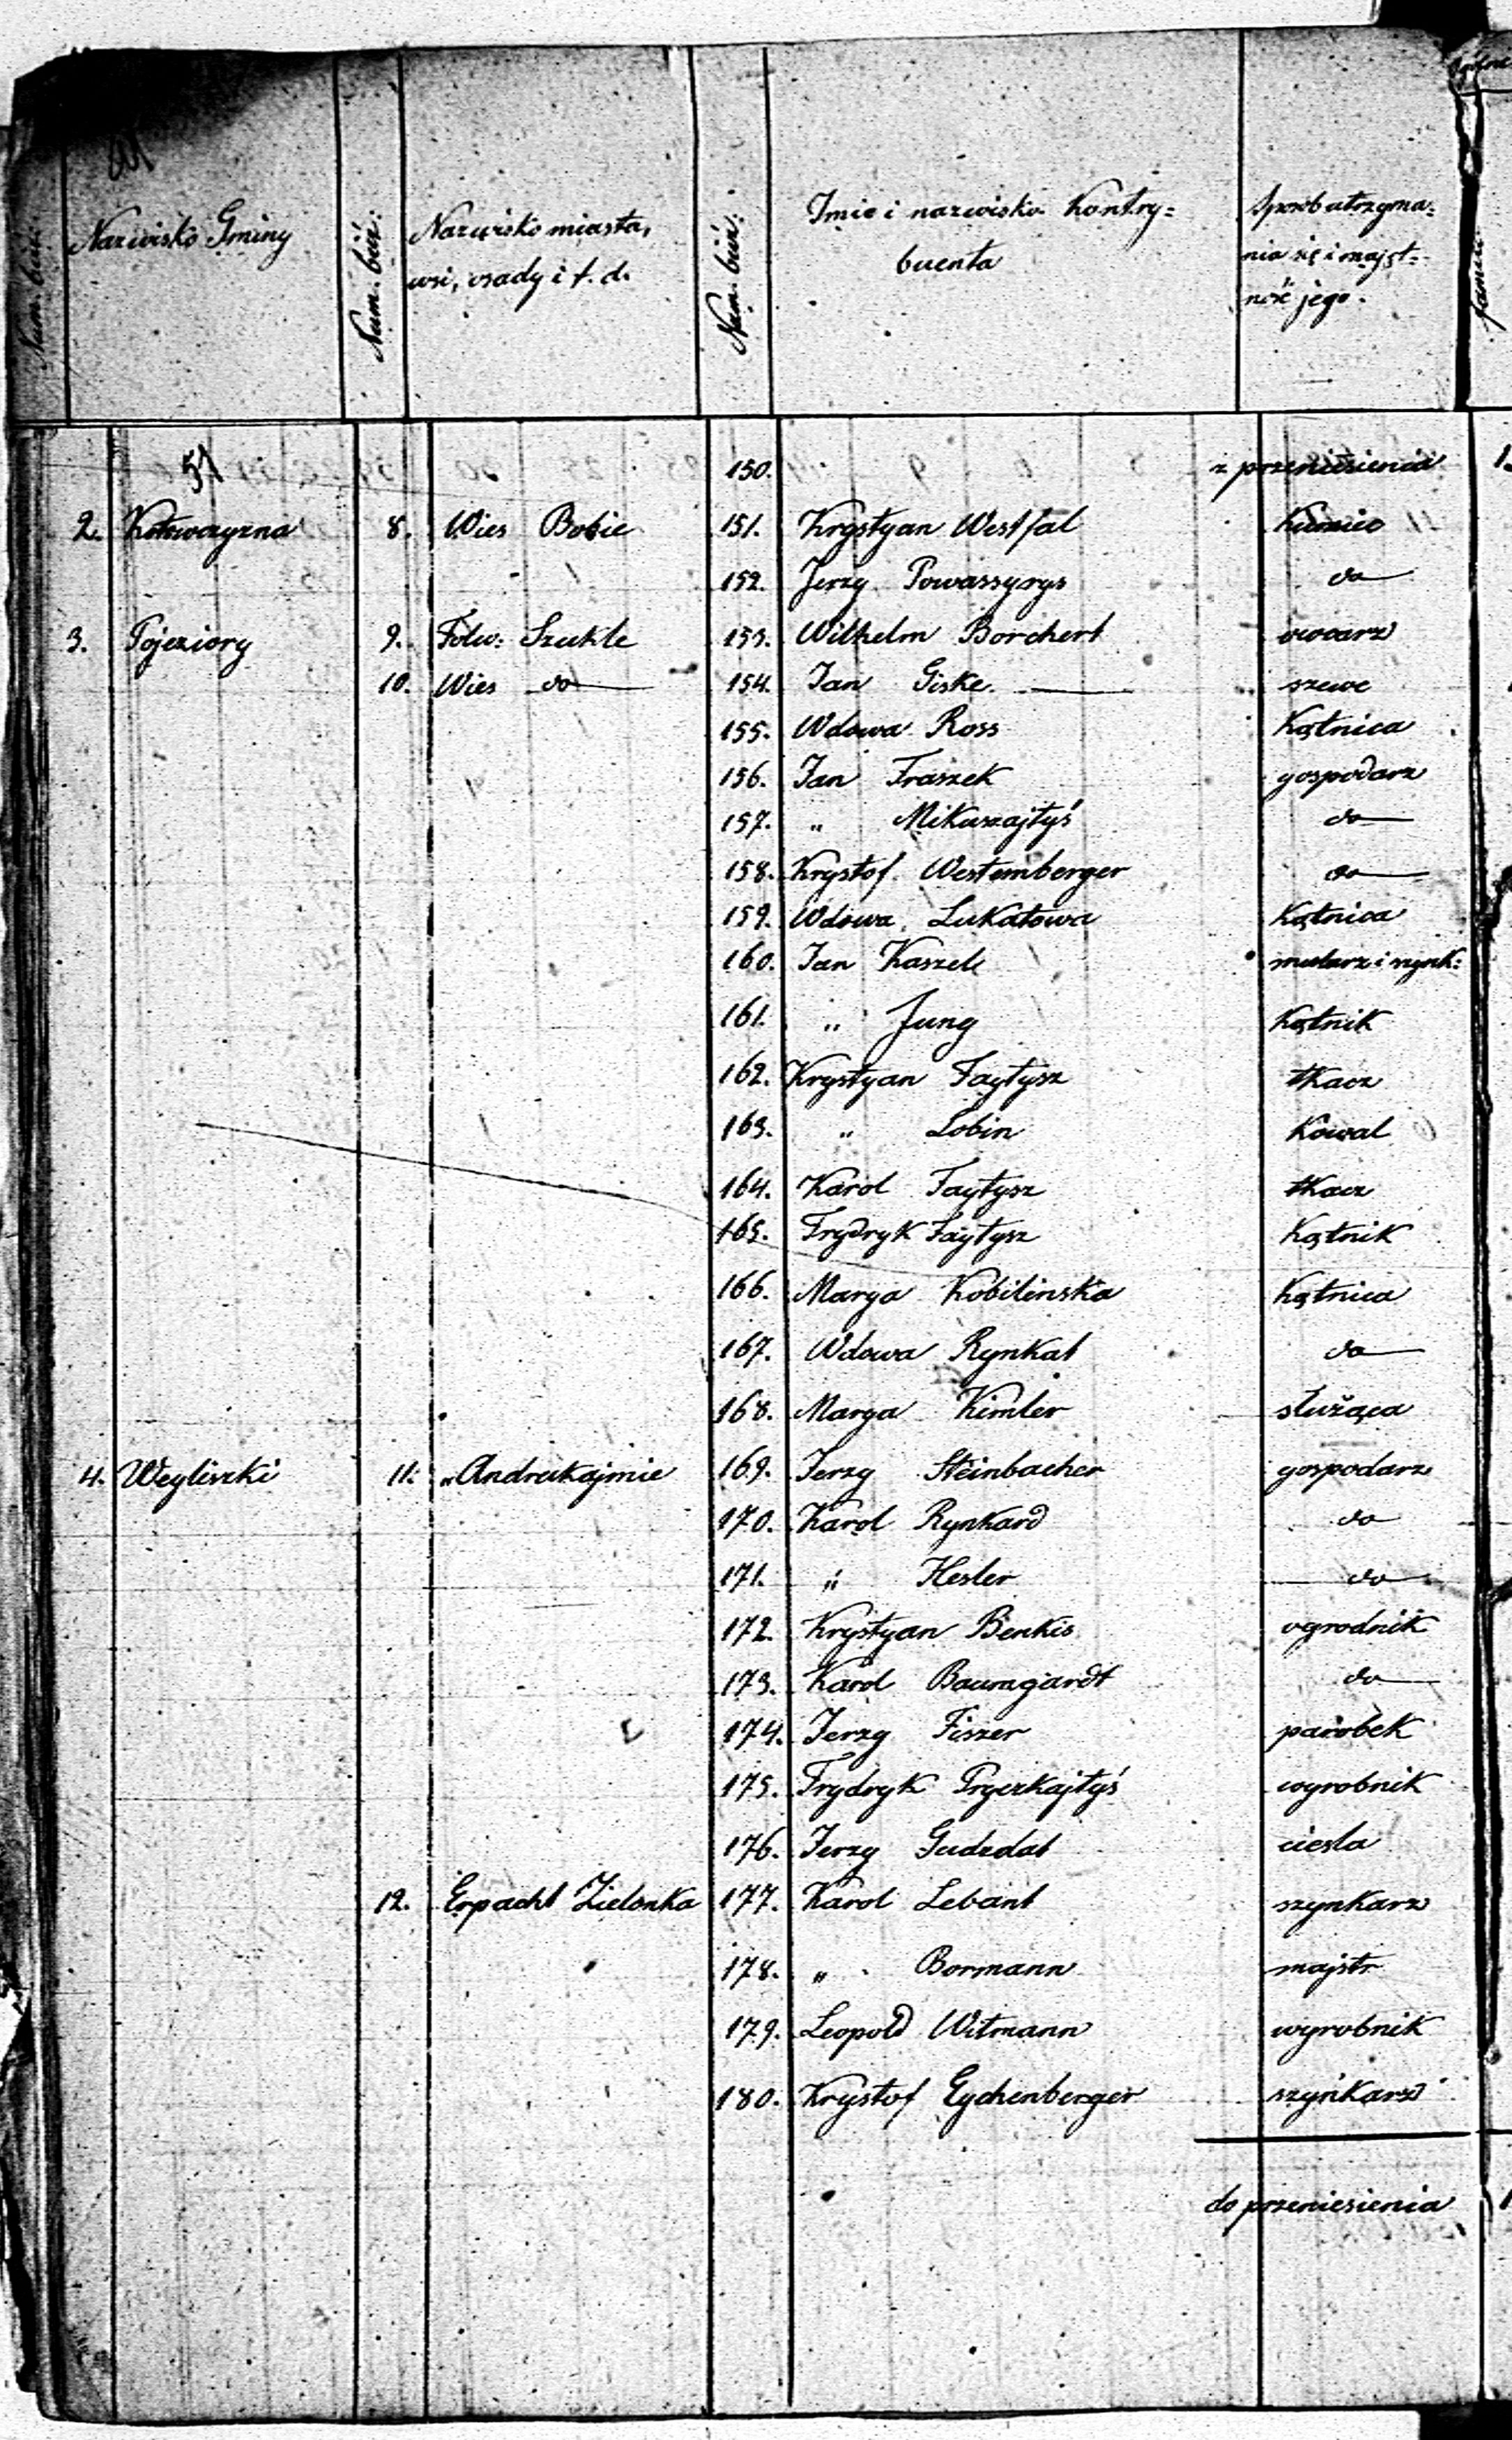 Num. bież.
Nazwisko Gminy
Num. bież.
Nazwisko miasta,
wsi, osady i t. d.
Num. bież.
Imie i nazwisko Kontry=
buenta
Sposób utrzyma=
nia się i majęt=
ność jego.
51 150. z przeniesienia
2. 8. Wies Bobie 151. Krystyan Westfal
152. Jerzy Powassyrys do
3. Pojeziory 9. Folw: Szukle 153. Wilhelm Borchert owcarz
10. Wies do 154. Jan Giske szewc
155. Wdowa Ross Kątnica
156. Jan Fraszek gospodarz
157. „ Mikuszajtyś do
158. Krystof Westemberger do
159. Wdowa Lukatowa Kątnica
160. Jan Kaszel mularz i szynk:
161. „ Jung Kątnik
162. Krystyan Faytysz tkacz
163. „ Lobin Kowal
164. Karol Faytysz tkacz
165. Frydryk Faytysz Kątnik
166. Marya Kobilinska Kątnica
167. Wdowa Rynkat do
168. Marya Kimler służąca
4. Weyliszki 11. „ Andrukajmie 169. Jerzy Steinbacher gospodarz
170. Karol Rynkard do
171. „ Hesler do
172. Krystyan Benkis ogrodnik
173. Karol Baumgardt do
174. Jerzy Fiszer parobek
175. Frydryk Pryezkajtyś wyrobnik
176. Jerzy Gudzdat ciesla
12. Erpacht Zielonka 177. Karol Lebant szynkarz
178. „ Bormann majstr
179. Leopold Witmann wyrobnik
180. Krystof Eychenberger szynkarz
do przeniesienia